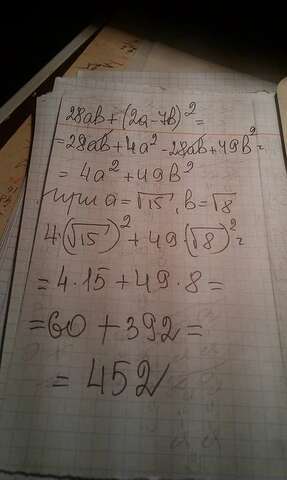 28ab + (2a - 7b)² =
= 28ab + 4a² - 28ab + 49b² =
= 4a² + 49b²
при a = √15, b = √8
4·(√15)² + 49·(√8)² =
= 4·15 + 49·8 =
= 60 + 392 =
= 452